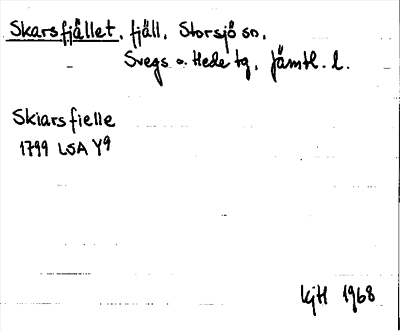 Skarsfjället, fjäll, Storsjö sn,
Svegs o. Hede tg, Jämtl. l.
Skiarsfielle
1799 LSA Y9
KjH 1968